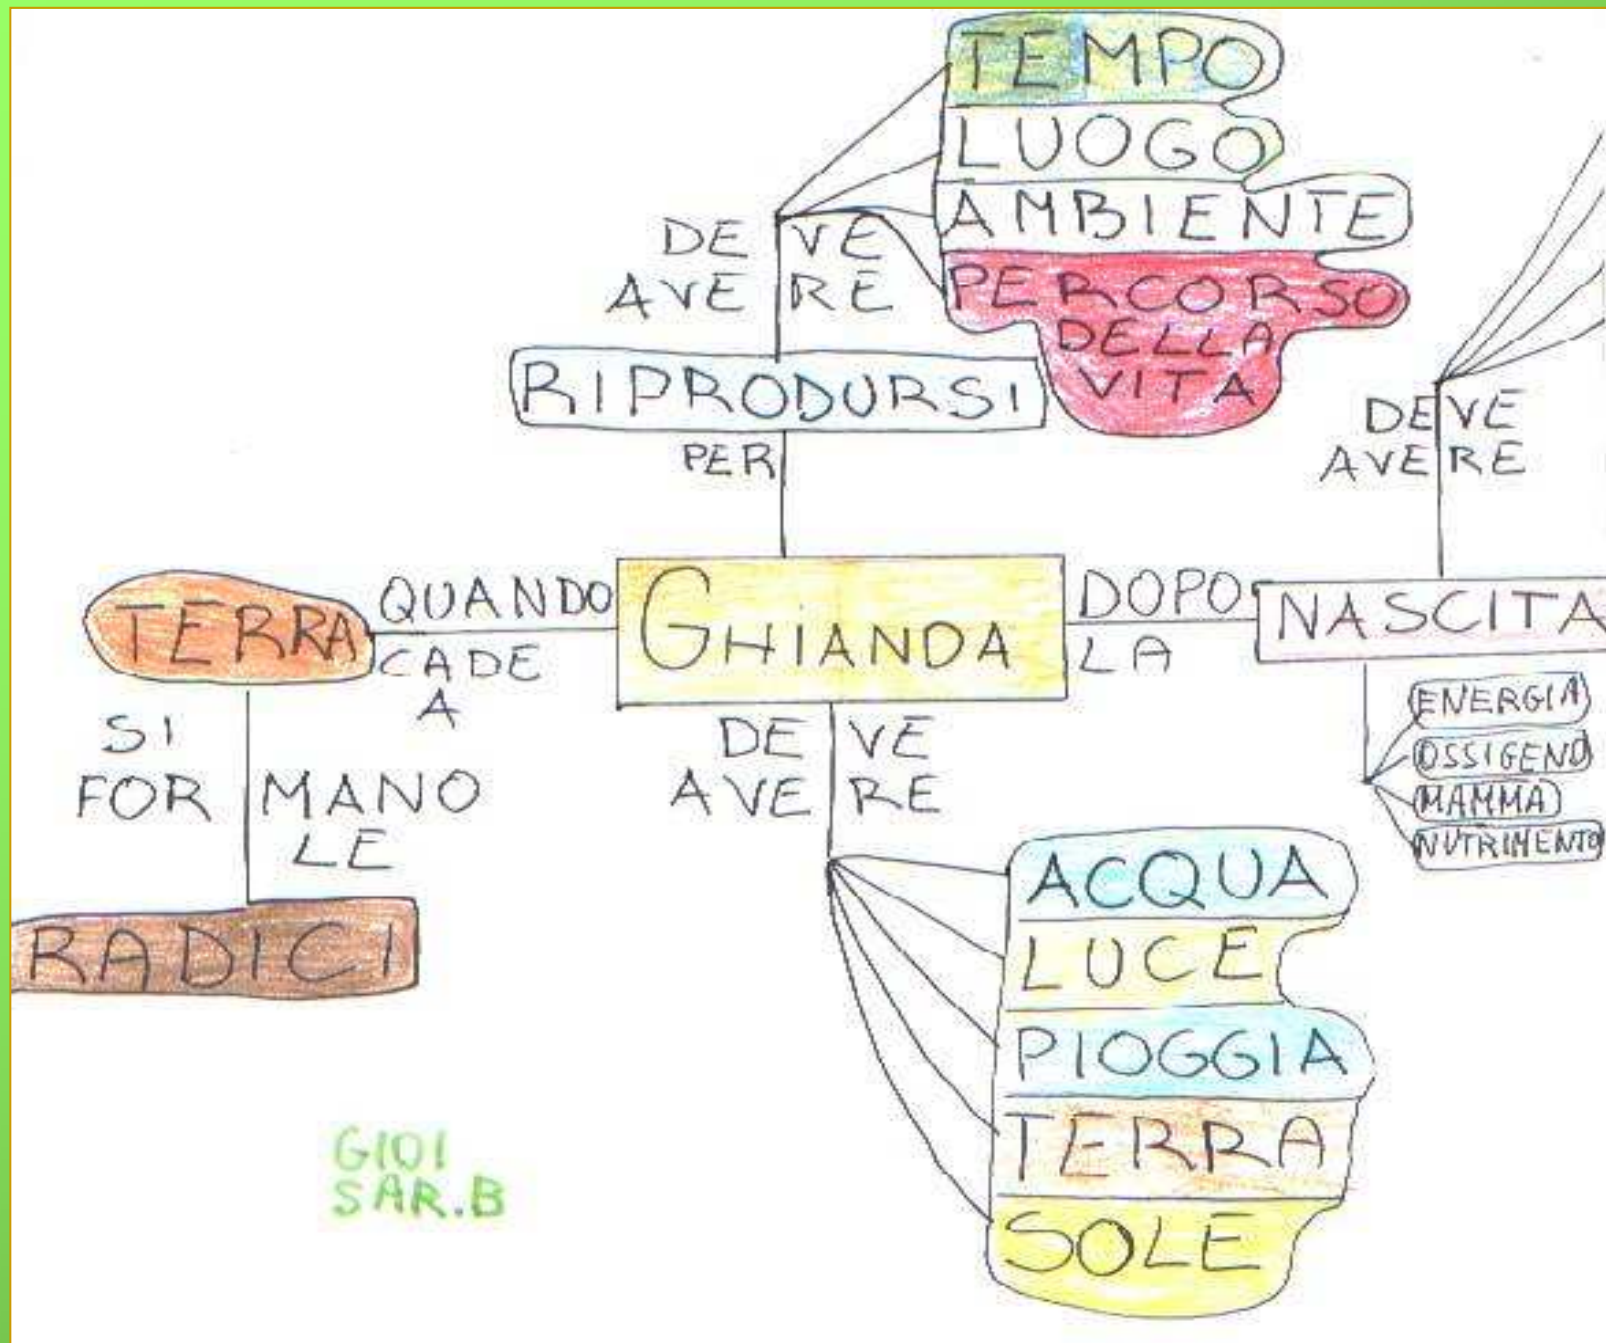 TEMPO
LUOGO
AMBIENTE
PERCORSO
DELLA
VITA
DEVE
AVERE
RIPRODURSI
PER
DEVE
AVERE
TERRA
QUANDO
CADE
A
GHIANDA
DOPO
LA
NASCITA
ENERGIA
OSSIGENO
MAMMA
NUTRIMENTO
SI
FORMANO
LE
RADICI
DEVE
AVERE
ACQUA
LUCE
PIOGGIA
TERRA
SOLE
GIOI
SAR.B